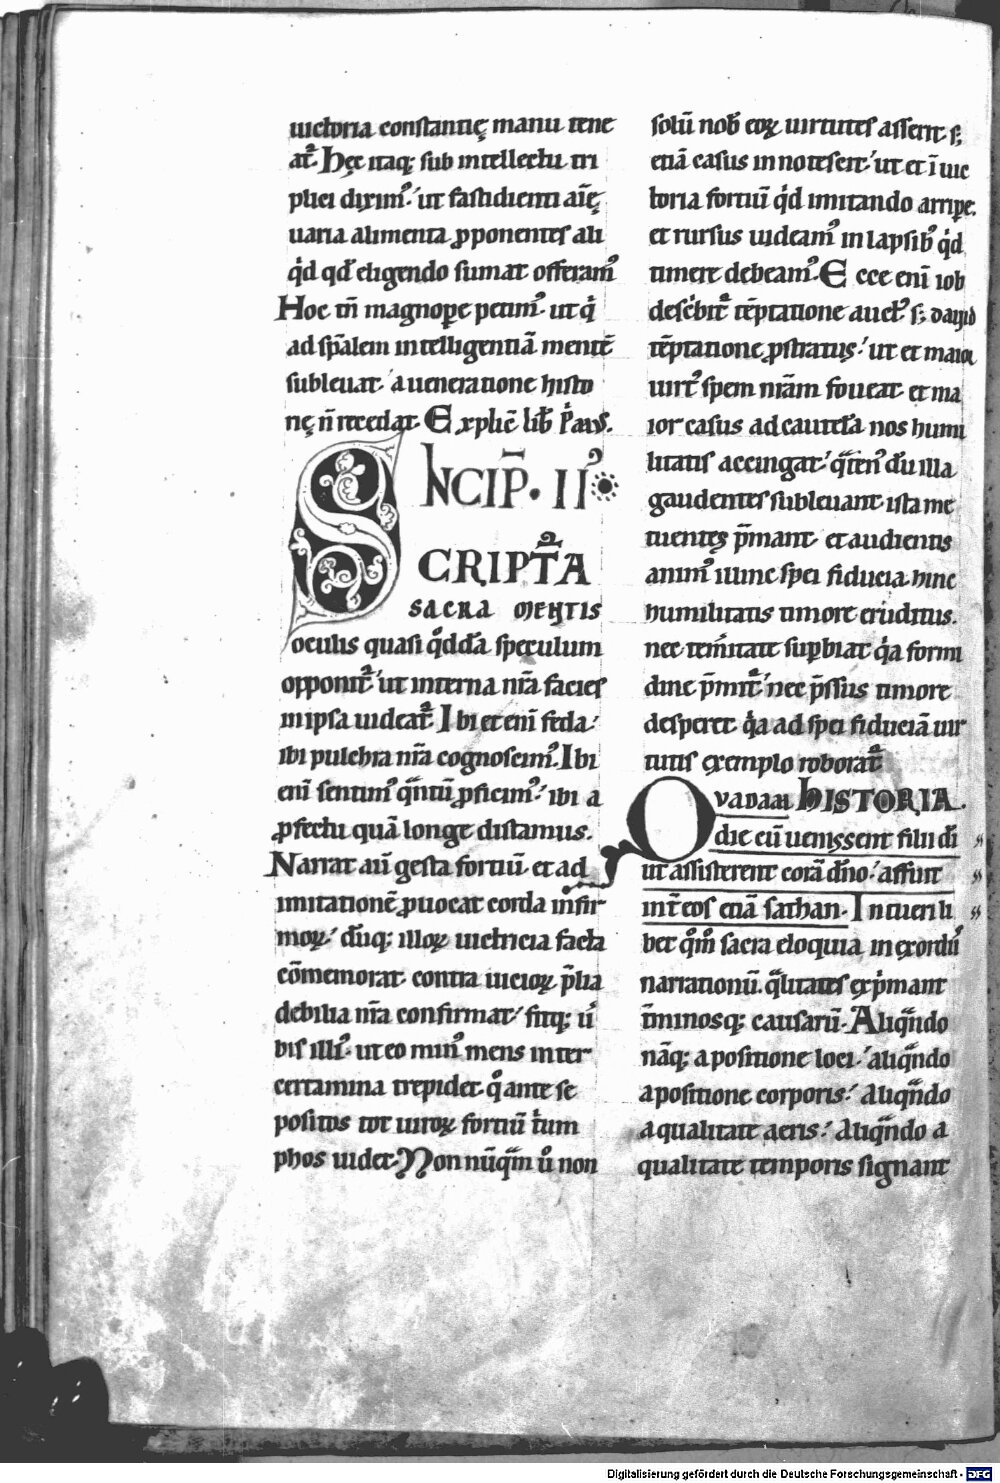 uictoria constantię manu tene
at᷑. Hęc itaq; sub intellectu tri
plici dirim᷒. ut fastidienti aīę
uaria alimenta ꝓponentes ali
qͥd qđ eligendo sumat offeram᷒
Hoc tn̄ magnoꝑe petim᷒. ut qͥ
ad sp̄alem intelligentiā mentē
subleuat. a ueneratione histo
rię n̄ recedat. Explic̄ lib̄ pͥmꝰ.
INCIP̄. II᷒
SCRIPT̄A᷑
SACRA MENTIS
oculis quasi qͦddā speculum
opponit᷑. ut interna nr̄a facies
in ipsa uideat᷑. Ibi etenī feda.
ibi pulchra nr̄a cognoscim᷒. Ibi
enī sentim᷒ qͣntū ꝓficim᷒. ibi a
ꝓfectu quā longe distamus.
Narrat aū gesta fortiū. et ad
imitationē ꝓuocat corda infir-
moꝝ. dūq; illoꝝ uictricia facta
cōmemorat. contra uicioꝝ p̄lia
debilia nr̄a confirmat. fitq; ū
bis illi᷒. ut eo min᷒ mens inter
certamina trepidet. qͦ ante se
positos tot uiroꝝ fortiū tͥum
phos uidet. Non nūqͣm ūo non
solū nob̄ eoꝝ uirtutes asserit. s;
etiā casus innotescit. ut et ī uic
toria fortiū qͥd imitando arripe.
et rursus uideam᷒ in lapsib᷒ qͥd
timere debeam᷒. Ecce enī iob
describit᷑ tēptatione auct᷒. s; dauid
tēptatione ꝓstratus. ut et maioꝝ
uirt᷒ spem nr̄am foueat. et ma
ior casus ad cautelā nos humi
litatis accingat. qͣten᷒ dū illa
gaudentes subleuant. ista me
tuentes p̄mant. et audientis
anim᷒ illinc spei fiducia. hinc
humilitatis timore eruditus.
nec temītate suꝑbiat. qͥa formi
dine p̄mit᷑. nec p̄ssus timore
desperet. qͥa ad spei fiduciā uir
tutis exemplo roborat᷑
QVADAM HISTORIA.
die cū uenissent filii dī
ut assisterent corā dn̄o. affuit
int̄ eos etiā sathan. Intueri li
bet qͦm᷒ sacra eloquia in exordiis
narrationū. qͣlitates exp̄mant
t̄minosq; causarū. Aliqͣndo
nāq; a positione loci. aliqͣndo
a positione corporis. aliqͣndo
a qualitate aeris. aliqͣndo a
qualitate temporis signant
Digitalisierung gefördert durch die Deutsche Forschungsgemeinschaft - DFG